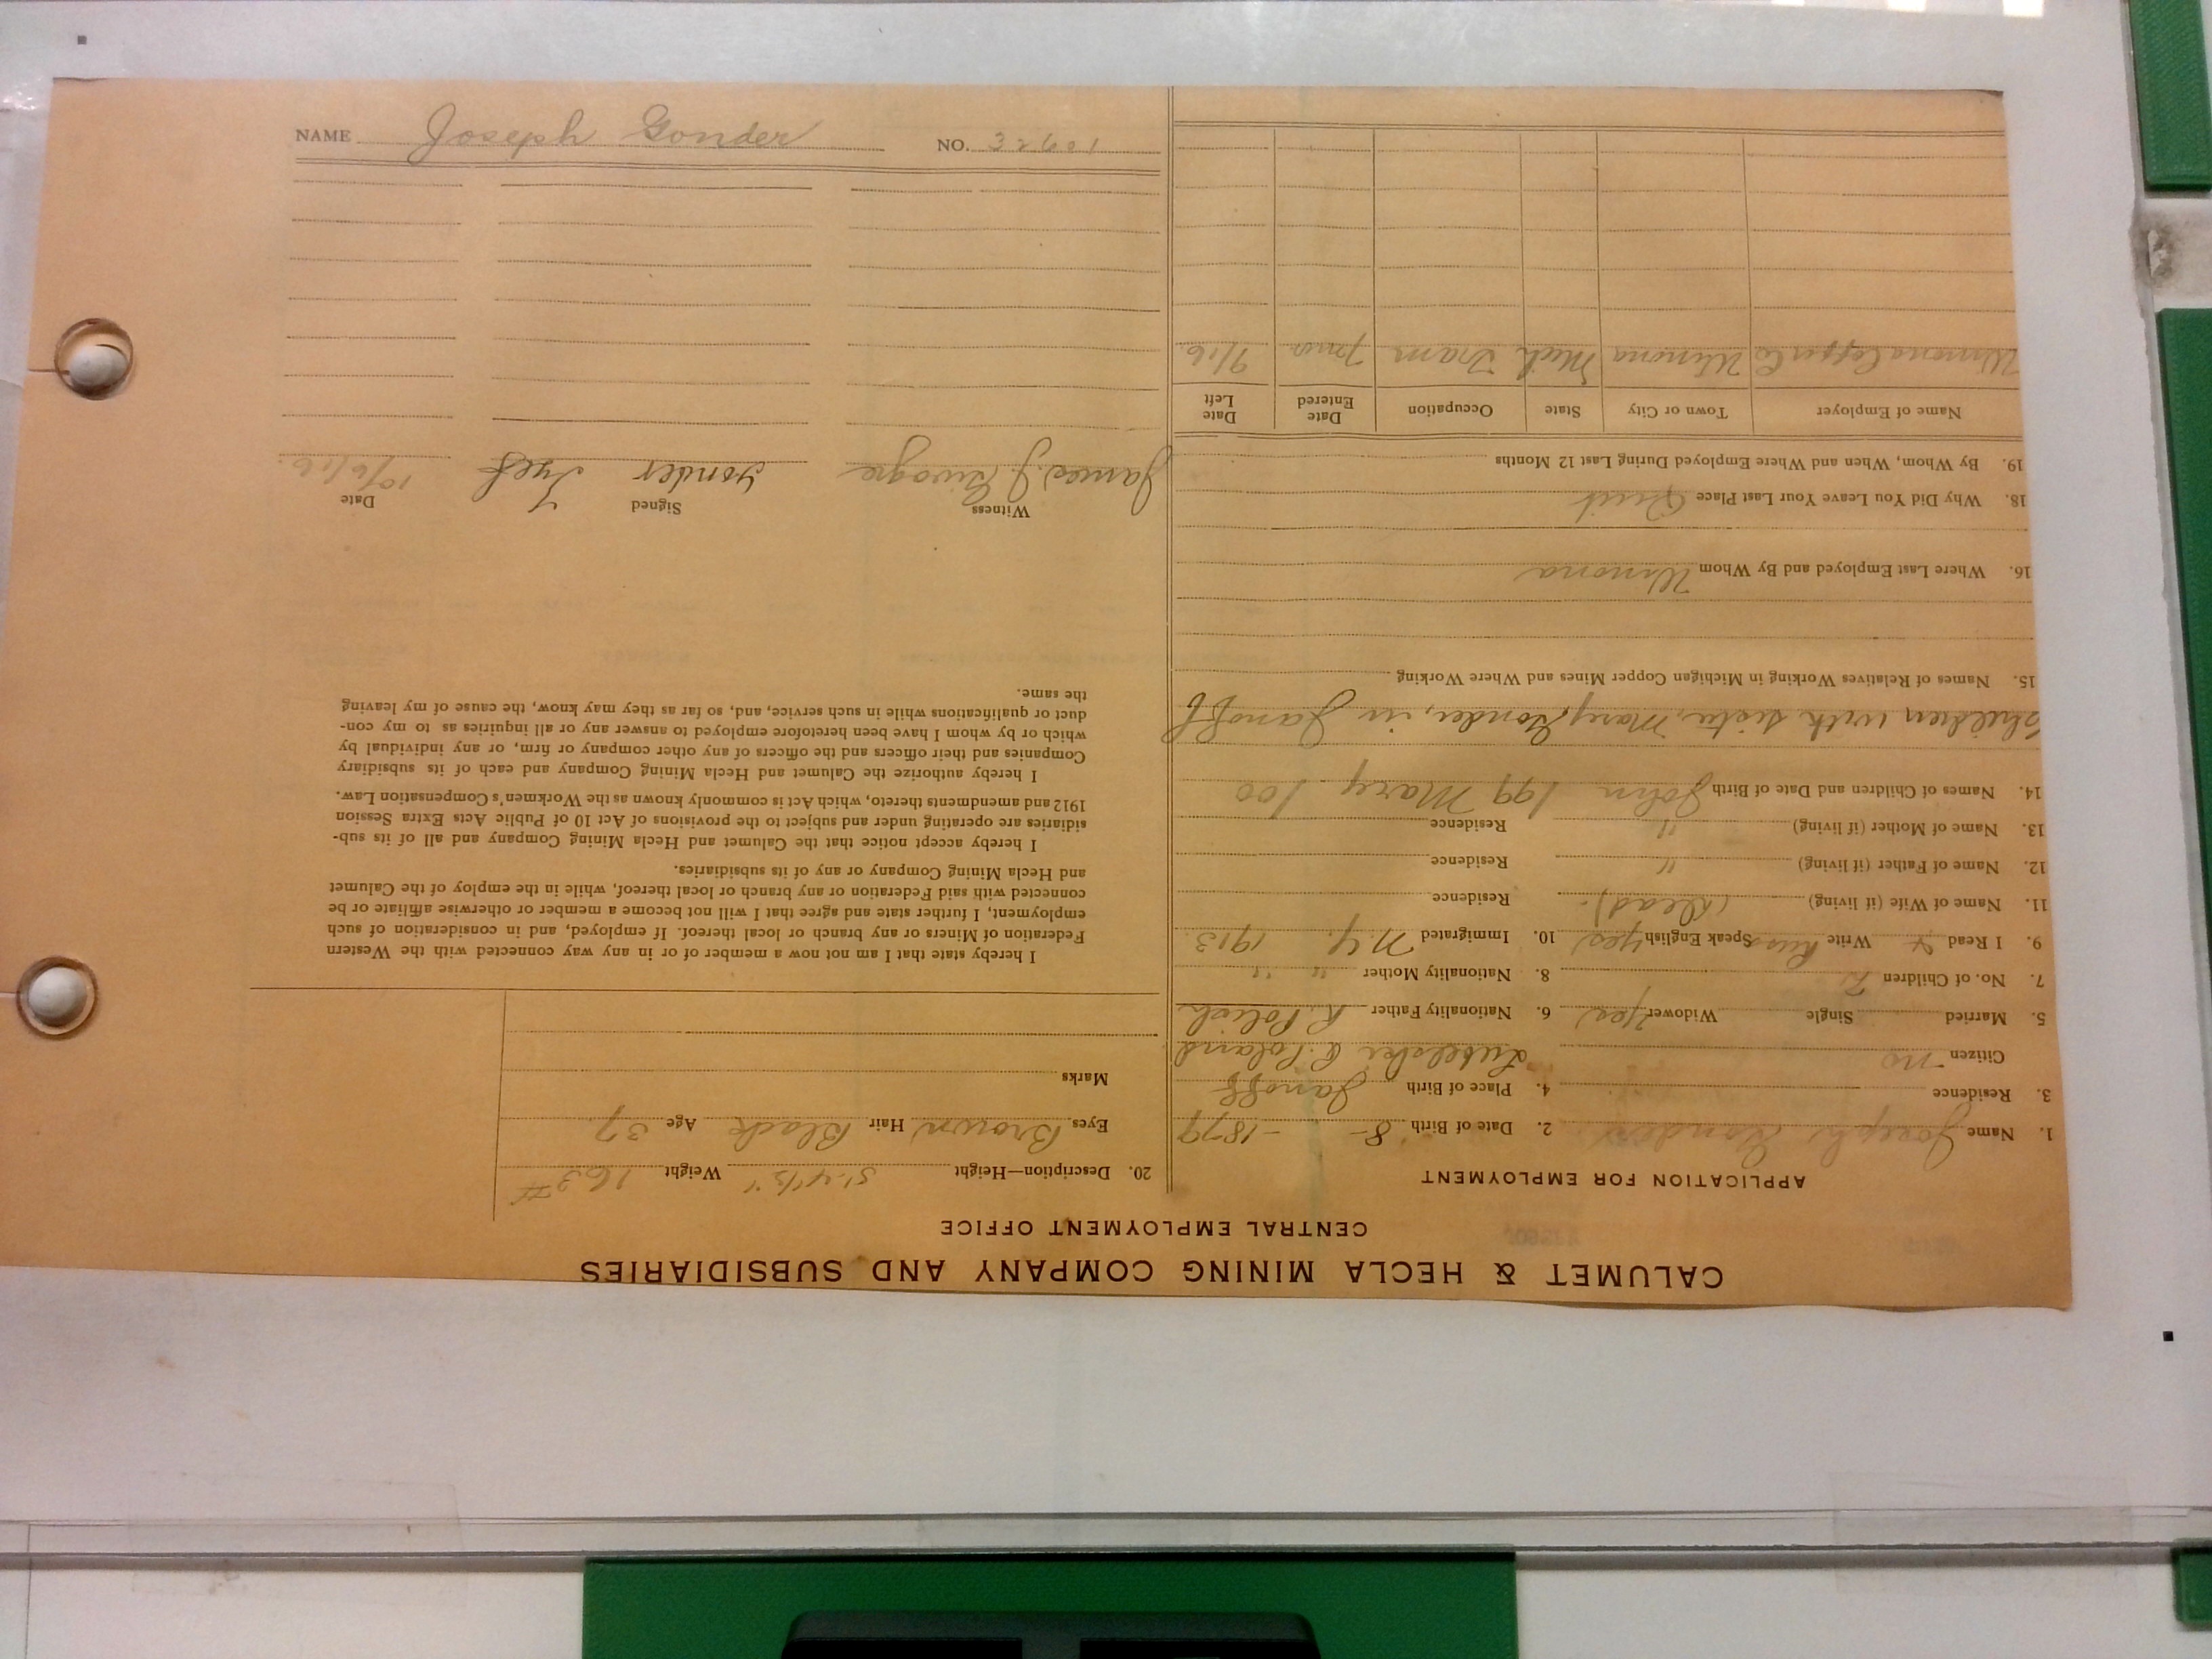 CALUMET & HECLA MINING COMPANY AND SUBSIDIARIES
CENTRAL EMPLOYMENT OFFICE
APPLICATION FOR EMPLOYMENT
1. Name Joseph Gonder 2. Date of Birth 8 - - 1879
3. Residence 4. Place of Birth Janoff
Citizen no Lubelski R. Poland
5. Married Single Widower yes 6. Nationality Father R. Polish
7. No. of Children 2 8. Nationality Mother " "
9. I Read & Write Russ Speak English yes 10. Immigrated N.Y. 1913
11. Name of Wife (if living) (dead). Residence
12. Name of Father (if living) " Residence
13. Name of Mother (if living) " Residence
14. Names of Children and Date of Birth John 199 Mary 100
Children with sister, Mary Gonder, in Janoff
15. Names of Relatives Working in Michigan Copper Mines and Where Working
16. Where Last Employed and By Whom Winona
18. Why Did You Leave Your Last Place Quit
19. By Whom, When and Where Employed During Last 12 Months
Name of Employer Town or City State Occupation Date Entered Date Left
Winona Copper Co Winona Mich Tram 7 mos 9/16
20. Description—Height 5'-4 1/2" Weight 163 #
Eyes Brown Hair Black Age 37
Marks
I hereby state that I am not now a member of or in any way connected with the Western
Federation of Miners or any branch or local thereof. If employed, and in consideration of such
employment, I further state and agree that I will not become a member or otherwise affiliate or be
connected with said Federation or any branch or local thereof, while in the employ of the Calumet
and Hecla Mining Company or any of its subsidiaries.
I hereby accept notice that the Calumet and Hecla Mining Company and all of its sub-
sidiaries are operating under and subject to the provisions of Act 10 of Public Acts Extra Session
1912 and amendments thereto, which Act is commonly known as the Workmen's Compensation Law.
I hereby authorize the Calumet and Hecla Mining Company and each of its subsidiary
Companies and their officers and the officers of any other company or firm, or any individual by
which or by whom I have been heretofore employed to answer any or all inquiries as to my con-
duct or qualifications while in such service, and, so far as they may know, the cause of my leaving
the same.
Witness Signed Date
James J. Gonder 10/6/16.
NAME Joseph Gonder NO. 32601